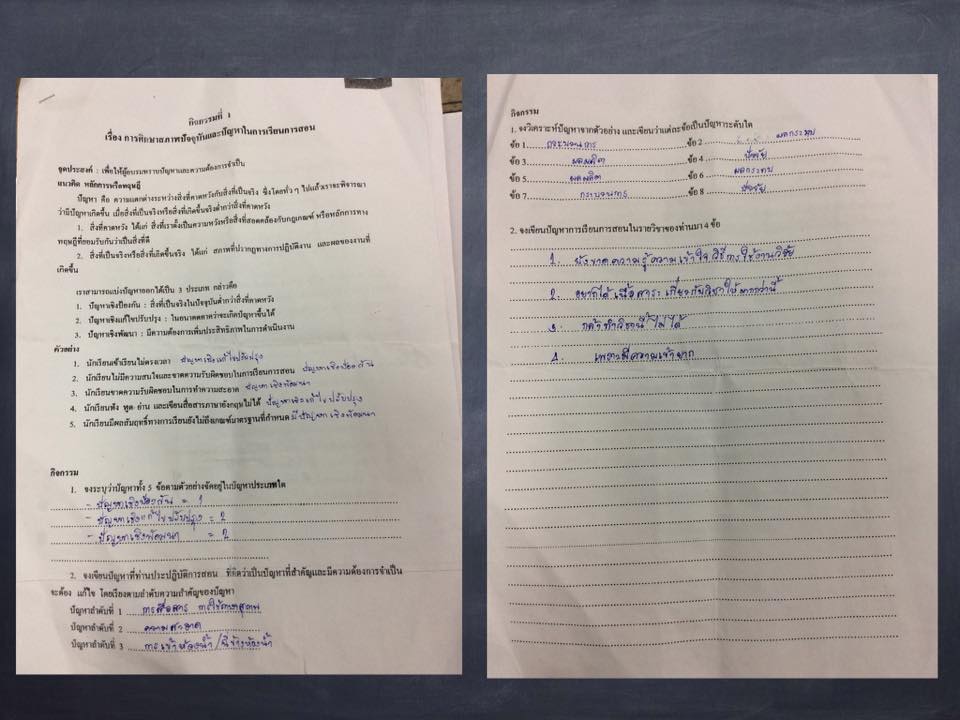 กิจกรรมที่ 1
เรื่อง การศึกษาสภาพปัจจุบันและปัญหาในการเรียนการสอน
จุดประสงค์ : เพื่อให้ผู้อบรมทราบปัญหาและความต้องการจำเป็น
แนวคิด หลักการหรือทฤษฎี
ปัญหา คือ ความแตกต่างระหว่างสิ่งที่คาดหวังกับสิ่งที่เป็นจริง ซึ่งโดยทั่ว ๆ ไปแล้วเราจะพิจารณา
ว่ามีปัญหาเกิดขึ้น เมื่อสิ่งที่เป็นจริงหรือสิ่งที่เกิดขึ้นจริงต่ำกว่าสิ่งที่คาดหวัง
1. สิ่งที่คาดหวัง ได้แก่ สิ่งที่เราตั้งเป็นความหวังหรือสิ่งที่สอดคล้องกับกฎเกณฑ์ หรือหลักการทาง
ทฤษฎีที่ยอมรับกันว่าเป็นสิ่งที่ดี
2. สิ่งที่เป็นจริงหรือสิ่งที่เกิดขึ้นจริง ได้แก่ สภาพที่ปรากฏทางการปฏิบัติงาน และผลของงานที่
เกิดขึ้น
เราสามารถแบ่งปัญหาออกได้เป็น 3 ประเภท กล่าวคือ
1. ปัญหาเชิงป้องกัน : สิ่งที่เป็นจริงในปัจจุบันต่ำกว่าสิ่งที่คาดหวัง
2. ปัญหาเชิงแก้ไขปรับปรุง : ในอนาคตคาดว่าจะเกิดปัญหาขึ้นได้
3. ปัญหาเชิงพัฒนา : มีความต้องการเพิ่มประสิทธิภาพในการดำเนินงาน
ตัวอย่าง
1. นักเรียนเข้าเรียนไม่ตรงเวลา ปัญหาเชิงแก้ไขปรับปรุง
2. นักเรียนไม่มีความสนใจและขาดความรับผิดชอบในการเรียนการสอน ปัญหาเชิงป้องกัน
3. นักเรียนขาดความรับผิดชอบในการทำความสะอาด ปัญหาเชิงพัฒนา
4. นักเรียนฟัง พูด อ่าน และเขียนสื่อสารภาษาอังกฤษไม่ได้ ปัญหาเชิงแก้ไขปรับปรุง
5. นักเรียนมีผลสัมฤทธิ์ทางการเรียนยังไม่ถึงเกณฑ์มาตรฐานที่กำหนด ปัญหาเชิงพัฒนา
กิจกรรม
1. จงระบุว่าปัญหาทั้ง 5 ข้อตามตัวอย่างจัดอยู่ในปัญหาประเภทใด
- ปัญหาเชิงป้องกัน = 1
- ปัญหาเชิงแก้ไขปรับปรุง = 2
- ปัญหาเชิงพัฒนา = 2
2. จงเขียนปัญหาที่ท่านประปฏิบัติการสอน ที่คิดว่าเป็นปัญหาที่สำคัญและมีความต้องการจำเป็น
จะต้อง แก้ไข โดยเรียงตามลำดับความสำคัญของปัญหา
ปัญหาลำดับที่ 1 การสื่อสาร การใช้ภาษาสุภาพ
ปัญหาลำดับที่ 2 ความสะอาด
ปัญหาลำดับที่ 3 การเข้าห้องน้ำ/
กิจกรรม
1. จงวิเคราะห์ปัญหาจากตัวอย่าง และเขียนว่าแต่ละข้อเป็นปัญหาระดับใด
ข้อ 1 กระบวนการ ข้อ 2 ผลกระทบ
ข้อ 3 ผลผลิต ข้อ 4 ปัจจัย
ข้อ 5 ผลผลิต ข้อ 6 ผลกระทบ
ข้อ 7 กระบวนการ ข้อ 8 ปัจจัย
2. จงเขียนปัญหาการเรียนการสอนในรายวิชาของท่านมา 4 ข้อ
1. ยังขาดความรู้ความเข้าใจ วิธีการใช้งานวิจัย
2. อยากได้เนื้อสาระ เกี่ยวกับวิชาให้มากกว่านี้
3. กลัวทำวิชานี้ไม่ได้
4. เพราะมีความเข้ายาก